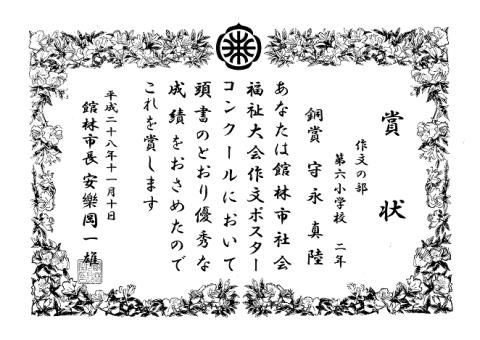 賞状
作文の部
第六小学校 二年
銅賞 守永真陸
あなたは館林市社会
福祉大会作文ポスター
コンクールにおいて
頭書のとおり優秀な
成績をおさめたので
これを賞します
平成二十八年十一月十日
館林市長 安樂岡一雄